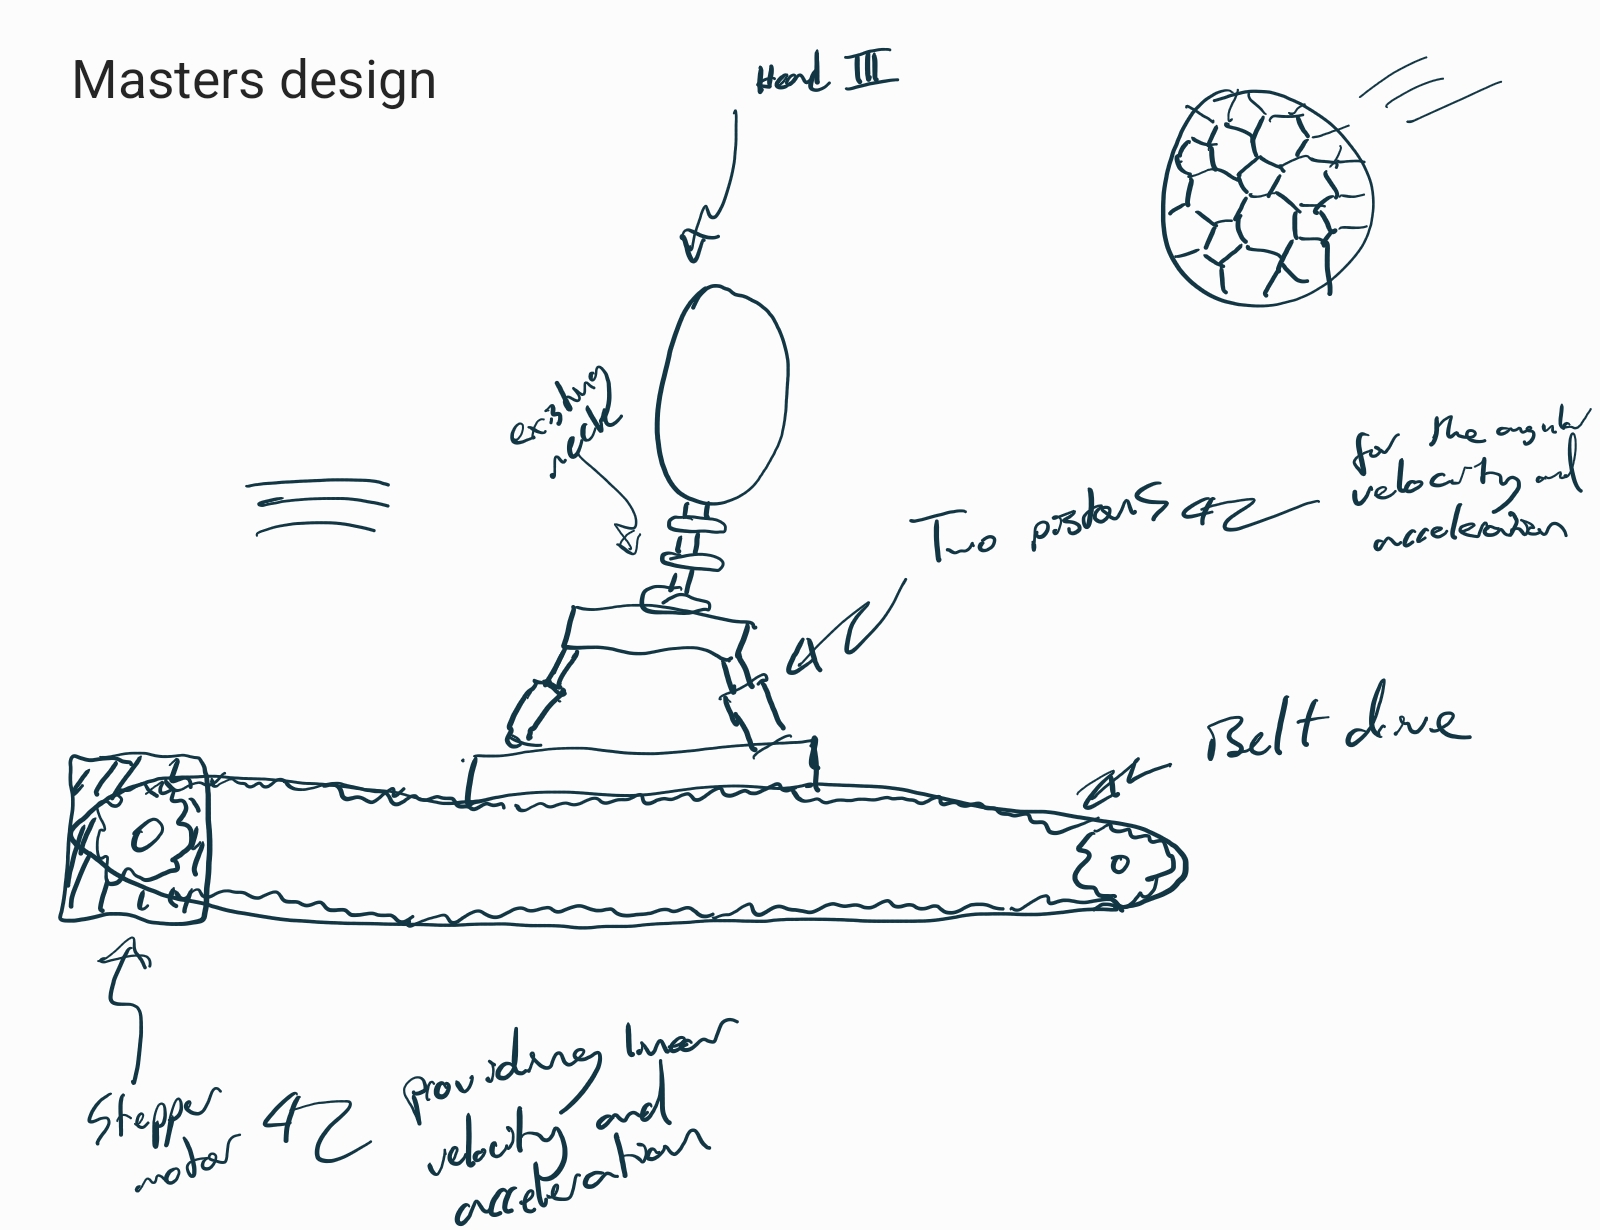 Masters design
Head III
existing
neck
Two pistons
for the angular
velocity and
acceleration
Belt drive
Stepper
motor
providing linear
velocity and
acceleration